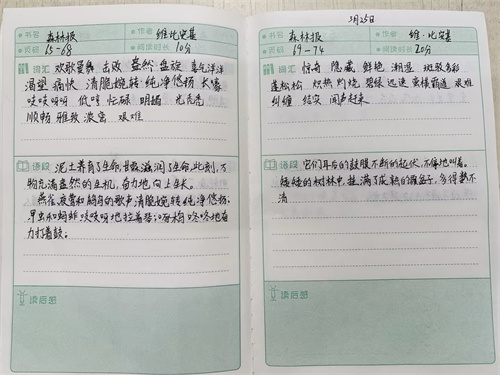 书名 森林报 作者 维·比安基
页码 65-68 阅读时长 10分
词汇 欢歌曼舞 击败 盎然 盘旋 喜气洋洋
渴望 痛快 清脆婉转 纯净悠扬 长喙
吱吱呀呀 低吟 忙碌 明媚 光秃秃
顺畅 雅致 浓密 艰难
语段 泥土养育了生命,甘露滋润了生命,此刻,万
物充满盎然的生机,奋力地向上生长。
燕雀、夜莺和鸫鸟的歌声清脆婉转、纯净悠扬,
甲虫和蚂蚱吱吱呀呀地拉着琴;啄木鸟咚咚地奋
力打着鼓。
读后感
3月25日
书名 森林报 作者 维·比安基
页码 69-74 阅读时长 20分
词汇 惊奇 隐藏 鲜艳 潮湿 斑驳多彩
蓬松松 炽热 灼烧 碧绿 迅速 蛮横霸道 艰难
纠缠 结实 闻声赶来
语段 它们耳后的鼓膜不断的起伏,不停地叫着。
矮矮的树林中,挂满了成熟的,多得数不
清
读后感